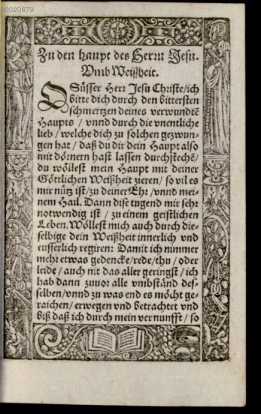 Zu den haupt des Herrn Jesu.
Vmb Weißheit.
O Süsser Herr Jesu Christe/ich
bitte dich durch den bittersten
schmertzen deines verwundtē
Haupts / vnnd durch die vnentliche
lieb / welche dich zu solchen gezwun-
gen hat / daß du dir dein Haupt also
mit dörnern hast lassen durchstechē/
du wöllest mein Haupt mit deiner
Göttlichen Weißheit zieren / so vil es
mir nütz ist/zu deiner Ehr /vnnd mei-
nem Hail. Dann dise tugend mir sehr
notwendig ist / zu einem geistlichen
Leben. Wöllest mich auch durch die-
selbige dein Weißheit innerlich vnd
eusserlich regiren: Damit ich nimmer
mehr etwas gedencke/rede/thu / oder
leide / auch nit das aller geringst / ich
hab dann zuuor alle vmbständ des-
selben/vnnd zu was end es möcht ge-
raichen/ erwegen vnd betrachtet vnd
biß daß ich durch mein vernunfft / so